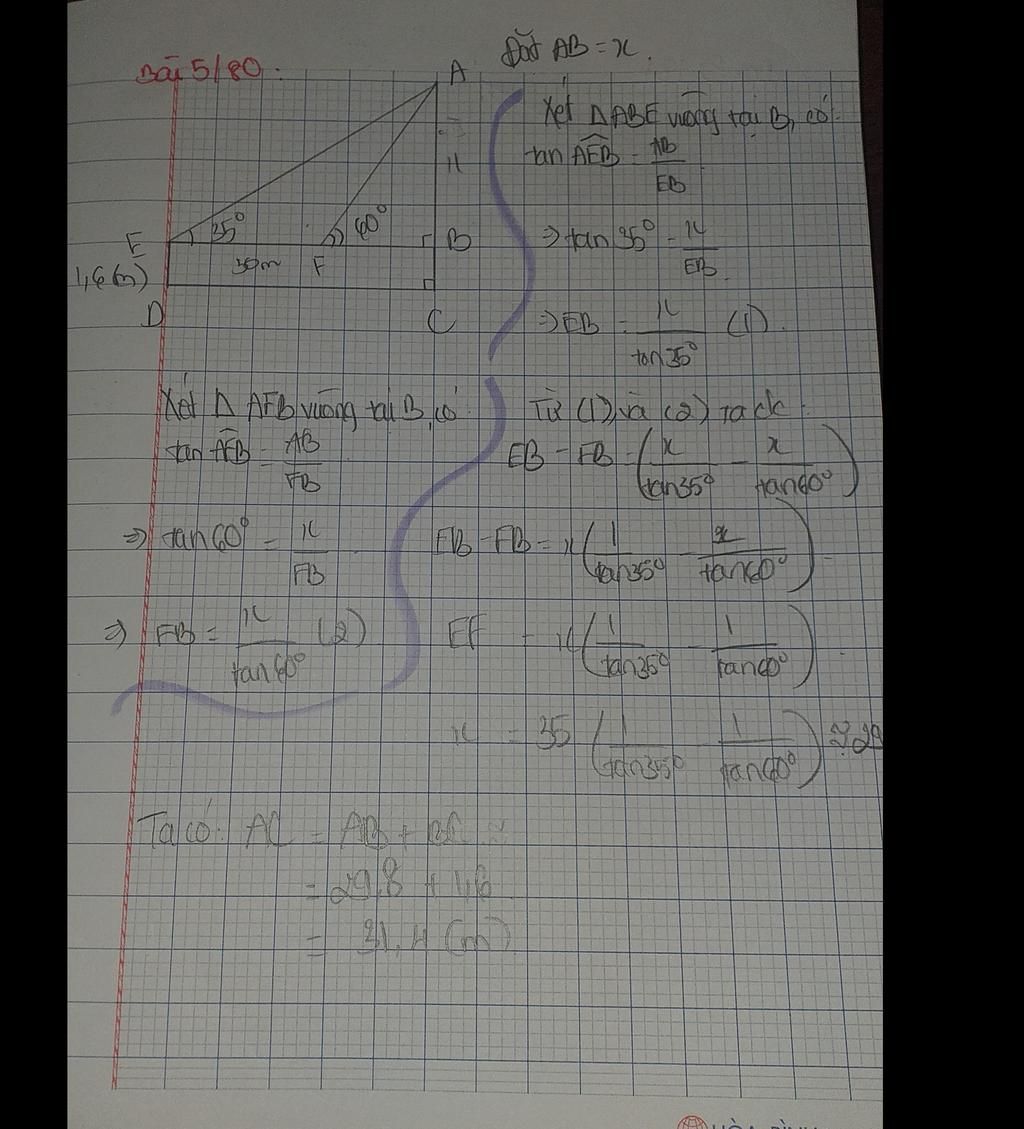 Bài 5/80:
Đặt AB = x.
A
x
E 35° 60° B
1,6(m) 30m F
D C
Xét ΔABE vuông tại B, có:
tan AEB = AB/EB
⇒ tan 35° = x/EB.
⇒ EB = x/tan35° (1).
Xét Δ AFB vuông tại B, có:
tan AFB = AB/FB
⇒ tan 60° = x/FB
⇒ FB = x/tan60° (2)
Từ (1) và (2) ta đc:
EB - FB = (x/tan35° - x/tan60°)
EB - FB = x(1/tan35° - x/tan60°).
EF = x(1/tan35° - 1/tan60°).
x = 35 (1/tan35° - 1/tan60°) ≈ 29
Ta có: AC = AB + BC
= 29,8 + 1,6
= 31,4 (m)